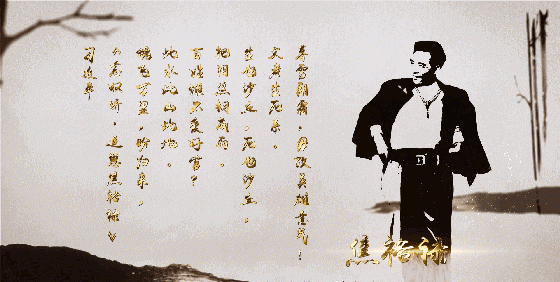 习近平
《念奴娇·追思焦裕禄》
魂飞万里，盼归来，
此水此山此地。
百姓谁不爱好官？
把泪焦桐成雨。
生也沙丘，死也沙丘，
父老生死系。
暮雪朝霜，毋改英雄意气！
焦裕禄